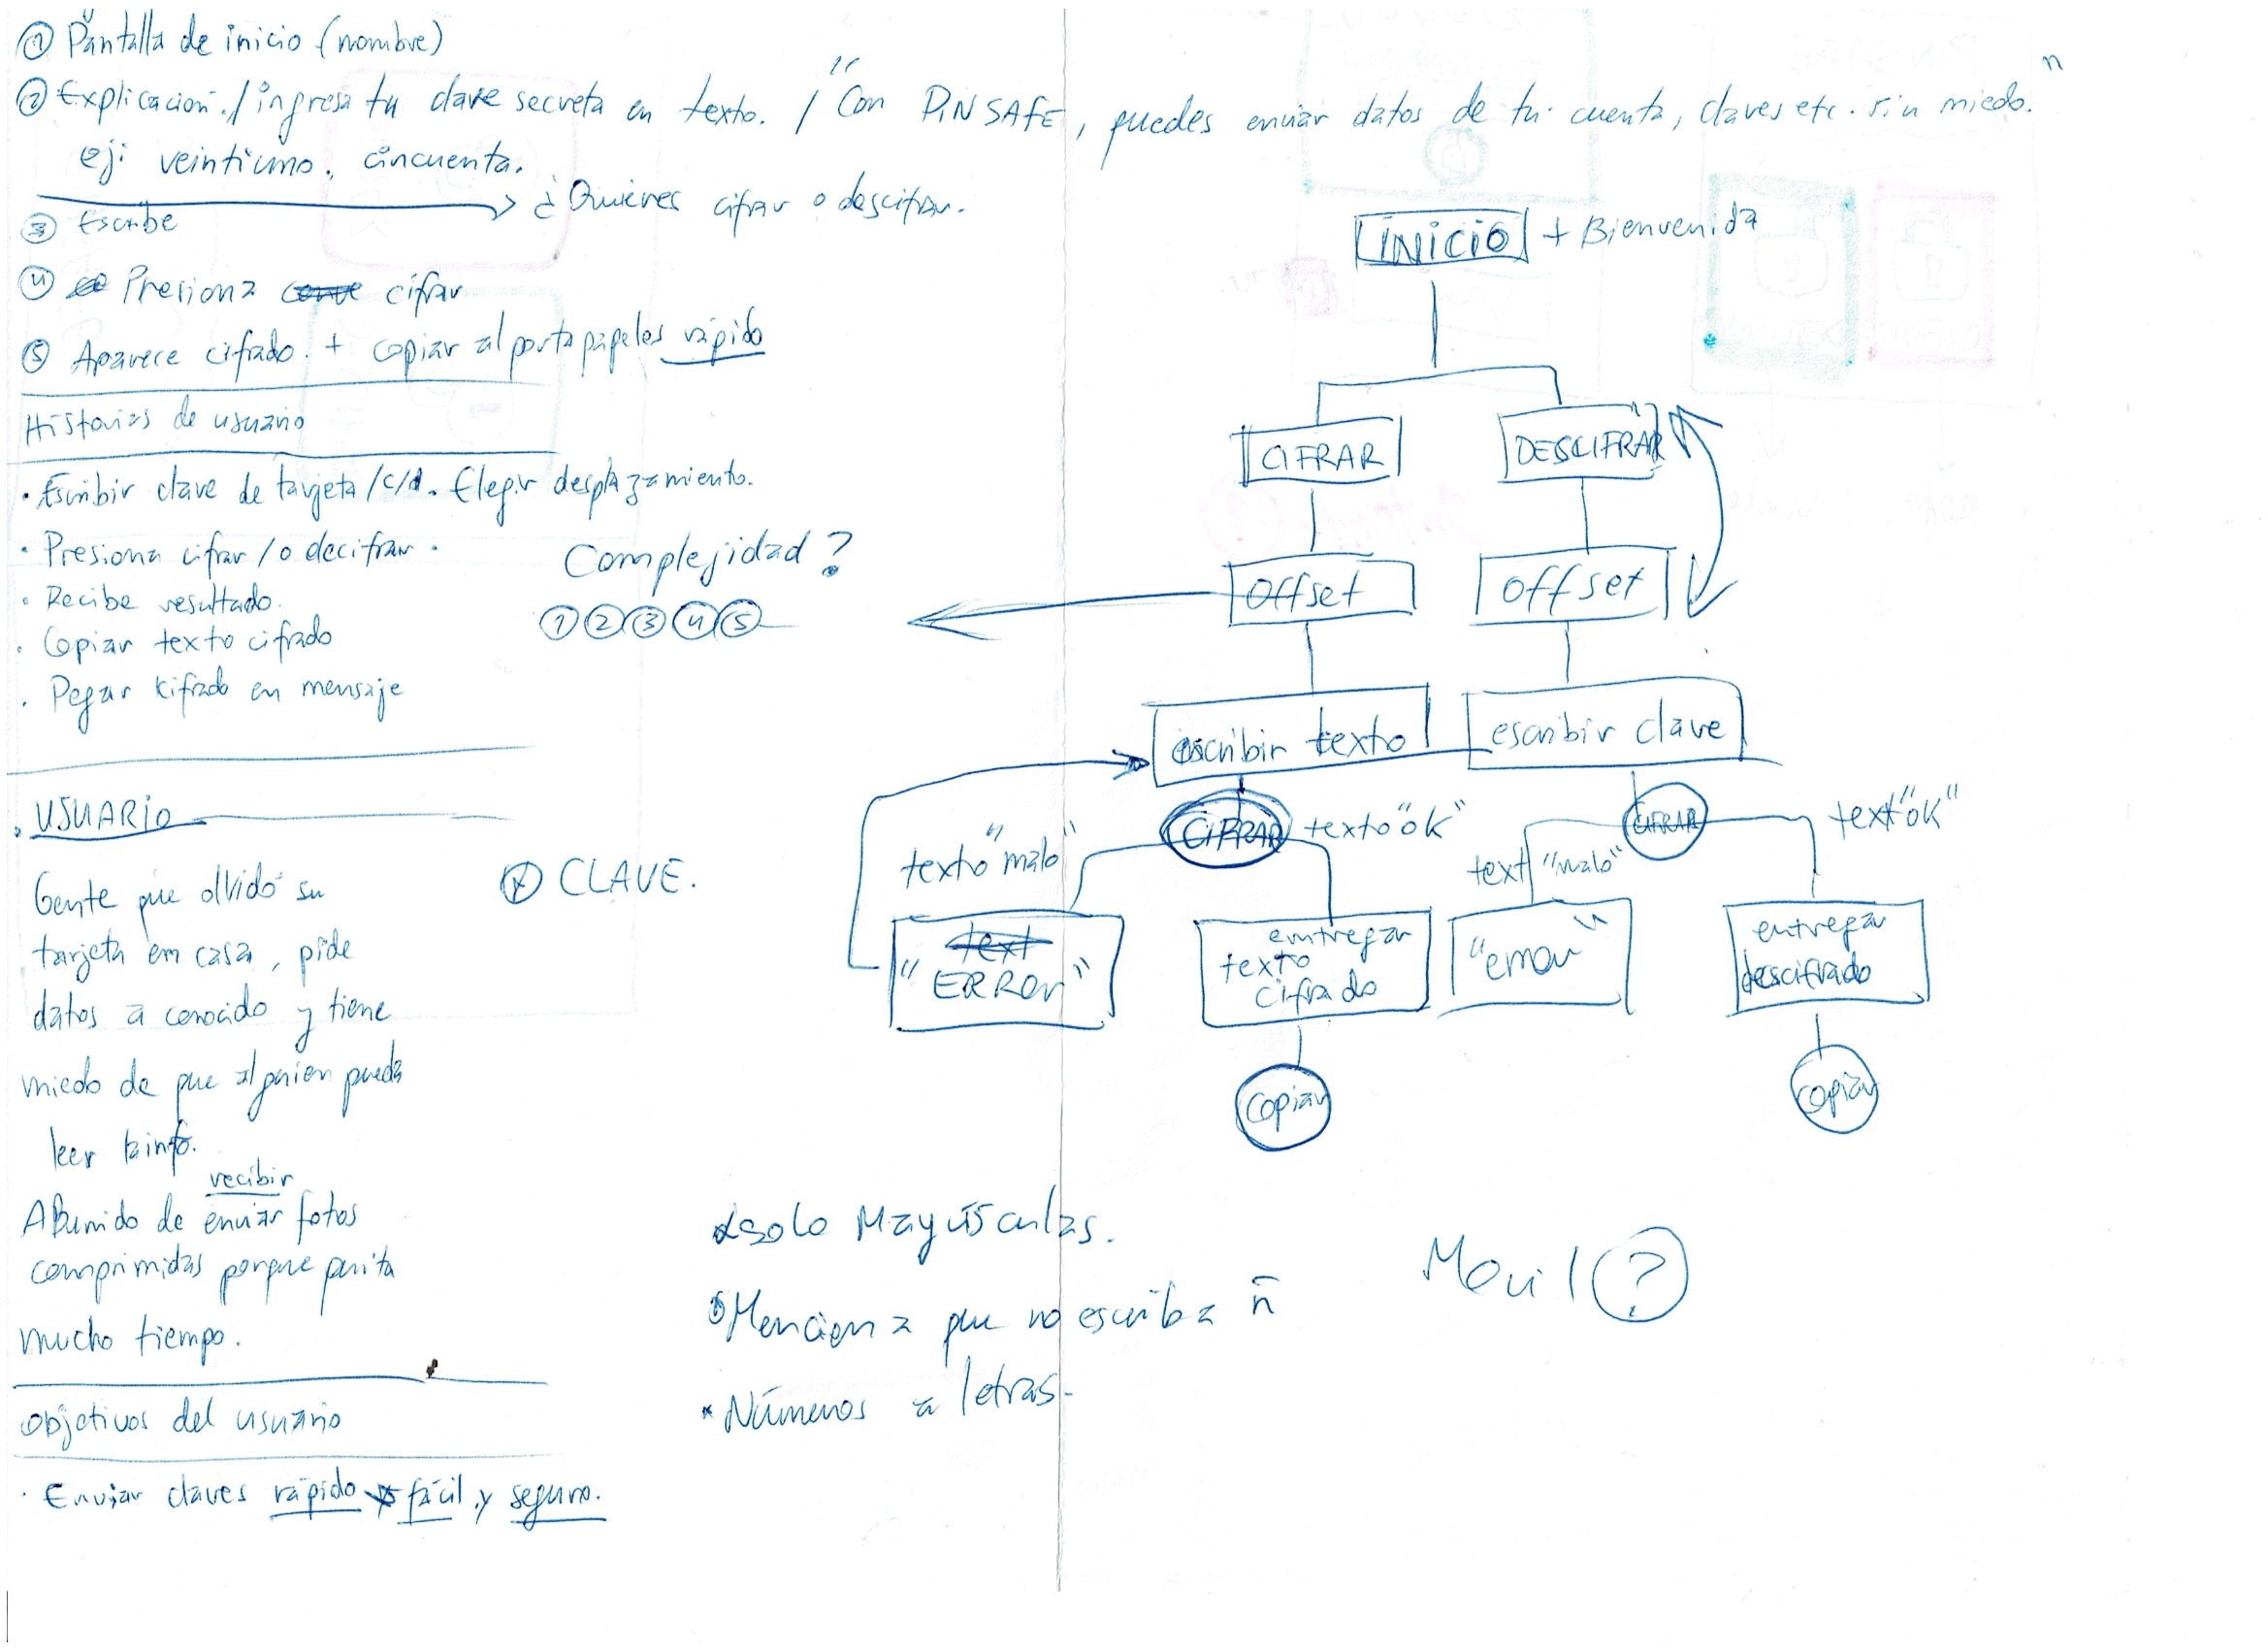 ① Pantalla de inicio (nombre)
② Explicación. / ingresa tu clave secreta en texto. / "Con PiNSAfE, puedes enviar datos de tu cuenta, claves etc. sin miedo."
ej: veintiuno, cincuenta.
→ ¿Quieres cifrar o descifrar.
③ Escribe
④ Presiona cifrar
⑤ Aparece cifrado. + copiar al portapapeles rápido
Historias de usuario
· Escribir clave de tarjeta /c/d. Elegir desplazamiento.
· Presiona cifrar /o decifrar.
· Recibe resultado.
· Copiar texto cifrado
· Pegar cifrado en mensaje
Complejidad?
① ② ③ ④ ⑤
· USUARIO
Gente que olvidó su
tarjeta em casa, pide
datos a conocido y tiene
miedo de que alguien pueda
leer la info.
recibir
Aburrido de enviar fotos
comprimidas porque quita
mucho tiempo.
CLAVE.
Objetivos del usuario
· Enviar claves rápido fácil y seguro.
INICIO + Bienvenida
CIFRAR
DESCIFRAR
Offset
Offset
escribir texto
escribir clave
CIFRAR
texto "malo"
texto "ok"
CIFRAR
text "malo"
text "ok"
text
"ERROr"
entregar
texto
cifrado
"error"
entregar
descifrado
copiar
copiar
solo Mayúsculas.
Menciona que no escriba ñ
Números a letras.
Movil ?